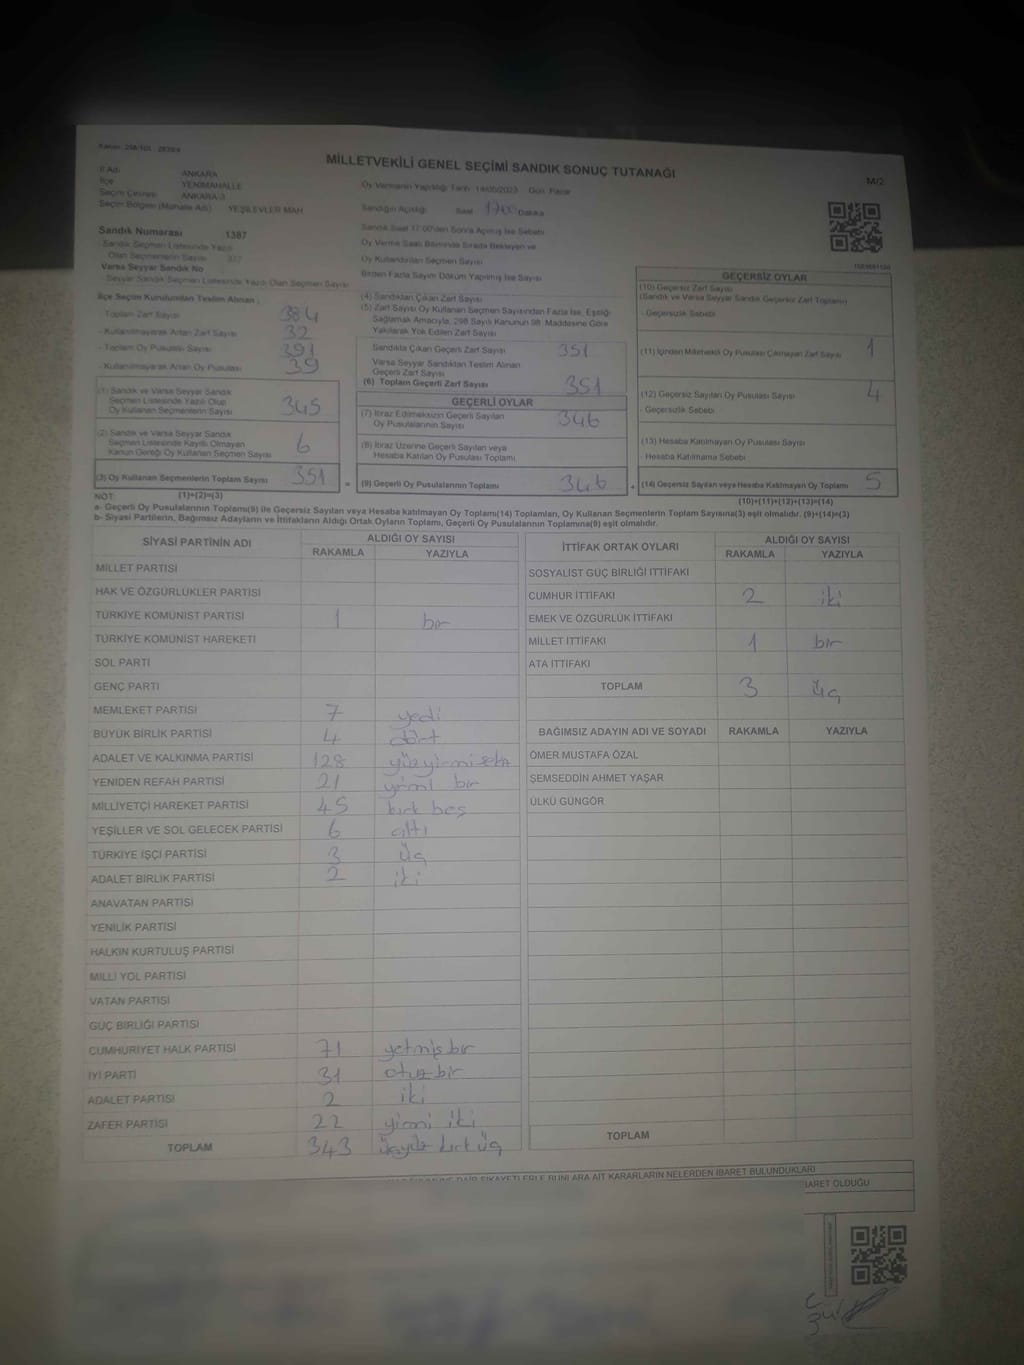 MİLLETVEKİLİ GENEL SEÇİMİ SANDIK SONUÇ TUTANAĞI
M/2
İl Adı ANKARA
İlçe YENİMAHALLE
Seçim Çevresi ANKARA-3
Seçim Bölgesi (Mahalle Adı) YEŞİLEVLER MAH
Oy Vermenin Yapıldığı Tarih 14/05/2023 Gün: Pazar
Sandığın Açıldığı Saat 1700 Dakika
Sandık Saat 17:00'den Sonra Açılmış İse Sebebi
Oy Verme Saati Bitiminde Sırada Bekleyen ve
Oy Kullandırılan Seçmen Sayısı
Birden Fazla Sayım Döküm Yapılmış İse Sayısı
Sandık Numarası 1387
- Sandık Seçmen Listesinde Yazılı
Olan Seçmenlerin Sayısı 377
Varsa Seyyar Sandık No
- Seyyar Sandık Seçmen Listesinde Yazılı Olan Seçmen Sayısı
İlçe Seçim Kurulundan Teslim Alınan ;
- Toplam Zarf Sayısı 384
- Kullanılmayarak Artan Zarf Sayısı 32
- Toplam Oy Pusulası Sayısı 391
- Kullanılmayarak Artan Oy Pusulası 39
(1) Sandık ve Varsa Seyyar Sandık
Seçmen Listesinde Yazılı Olup
Oy Kullanan Seçmenlerin Sayısı 345
(2) Sandık ve Varsa Seyyar Sandık
Seçmen Listesinde Kayıtlı Olmayan
Kanun Gereği Oy Kullanan Seçmen Sayısı 6
(3) Oy Kullanan Seçmenlerin Toplam Sayısı 351 =
(4) Sandıktan Çıkan Zarf Sayısı
(5) Zarf Sayısı Oy Kullanan Seçmen Sayısından Fazla İse, Eşitliği
Sağlamak Amacıyla, 298 Sayılı Kanunun 98. Maddesine Göre
Yakılarak Yok Edilen Zarf Sayısı
Sandıkta Çıkan Geçerli Zarf Sayısı 351
Varsa Seyyar Sandıktan Teslim Alınan
Geçerli Zarf Sayısı
(6) Toplam Geçerli Zarf Sayısı 351
GEÇERLİ OYLAR
(7) İtiraz Edilmeksizin Geçerli Sayılan
Oy Pusulalarının Sayısı 346
(8) İtiraz Üzerine Geçerli Sayılan veya
Hesaba Katılan Oy Pusulası Toplamı
(9) Geçerli Oy Pusulalarının Toplamı 346 +
GEÇERSİZ OYLAR
(10) Geçersiz Zarf Sayısı
(Sandık ve Varsa Seyyar Sandık Geçersiz Zarf Toplamı)
- Geçersizlik Sebebi
(11) İçinden Milletvekili Oy Pusulası Çıkmayan Zarf Sayısı 1
(12) Geçersiz Sayılan Oy Pusulası Sayısı 4
- Geçersizlik Sebebi
(13) Hesaba Katılmayan Oy Pusulası Sayısı
- Hesaba Katılmama Sebebi
(14) Geçersiz Sayılan veya Hesaba Katılmayan Oy Toplamı 5
NOT: (1)+(2)=(3)
(10)+(11)+(12)+(13)=(14)
a- Geçerli Oy Pusulalarının Toplamı(9) ile Geçersiz Sayılan veya Hesaba katılmayan Oy Toplamı(14) Toplamları, Oy Kullanan Seçmenlerin Toplam Sayısına(3) eşit olmalıdır. (9)+(14)=(3)
b- Siyasi Partilerin, Bağımsız Adayların ve İttifakların Aldığı Ortak Oyların Toplamı, Geçerli Oy Pusulalarının Toplamına(9) eşit olmalıdır.
SİYASİ PARTİNİN ADI ALDIĞI OY SAYISI
RAKAMLA YAZIYLA
MİLLET PARTİSİ
HAK VE ÖZGÜRLÜKLER PARTİSİ
TÜRKİYE KOMÜNİST PARTİSİ 1 bir
TÜRKİYE KOMÜNİST HAREKETİ
SOL PARTİ
GENÇ PARTİ
MEMLEKET PARTİSİ 7 yedi
BÜYÜK BİRLİK PARTİSİ 4 dört
ADALET VE KALKINMA PARTİSİ 128
YENİDEN REFAH PARTİSİ 21 yirmi bir
MİLLİYETÇİ HAREKET PARTİSİ 45 kırk beş
YEŞİLLER VE SOL GELECEK PARTİSİ 6 altı
TÜRKİYE İŞÇİ PARTİSİ 3 üç
ADALET BİRLİK PARTİSİ 2 iki
ANAVATAN PARTİSİ
YENİLİK PARTİSİ
HALKIN KURTULUŞ PARTİSİ
MİLLİ YOL PARTİSİ
VATAN PARTİSİ
GÜÇ BİRLİĞİ PARTİSİ
CUMHURİYET HALK PARTİSİ 71 yetmiş bir
İYİ PARTİ 31 otuz bir
ADALET PARTİSİ 2 iki
ZAFER PARTİSİ 22 yirmi iki
TOPLAM 343 üçyüz kırk üç
İTTİFAK ORTAK OYLARI ALDIĞI OY SAYISI
RAKAMLA YAZIYLA
SOSYALİST GÜÇ BİRLİĞİ İTTİFAKI
CUMHUR İTTİFAKI 2 iki
EMEK VE ÖZGÜRLÜK İTTİFAKI
MİLLET İTTİFAKI 1 bir
ATA İTTİFAKI
TOPLAM 3 üç
BAĞIMSIZ ADAYIN ADI VE SOYADI RAKAMLA YAZIYLA
ÖMER MUSTAFA ÖZAL
ŞEMSEDDİN AHMET YAŞAR
ÜLKÜ GÜNGÖR
TOPLAM
DAİR ŞİKAYETLERLE BUNLARA AİT KARARLARIN NELERDEN İBARET BULUNDUKLARI
OLDUĞU